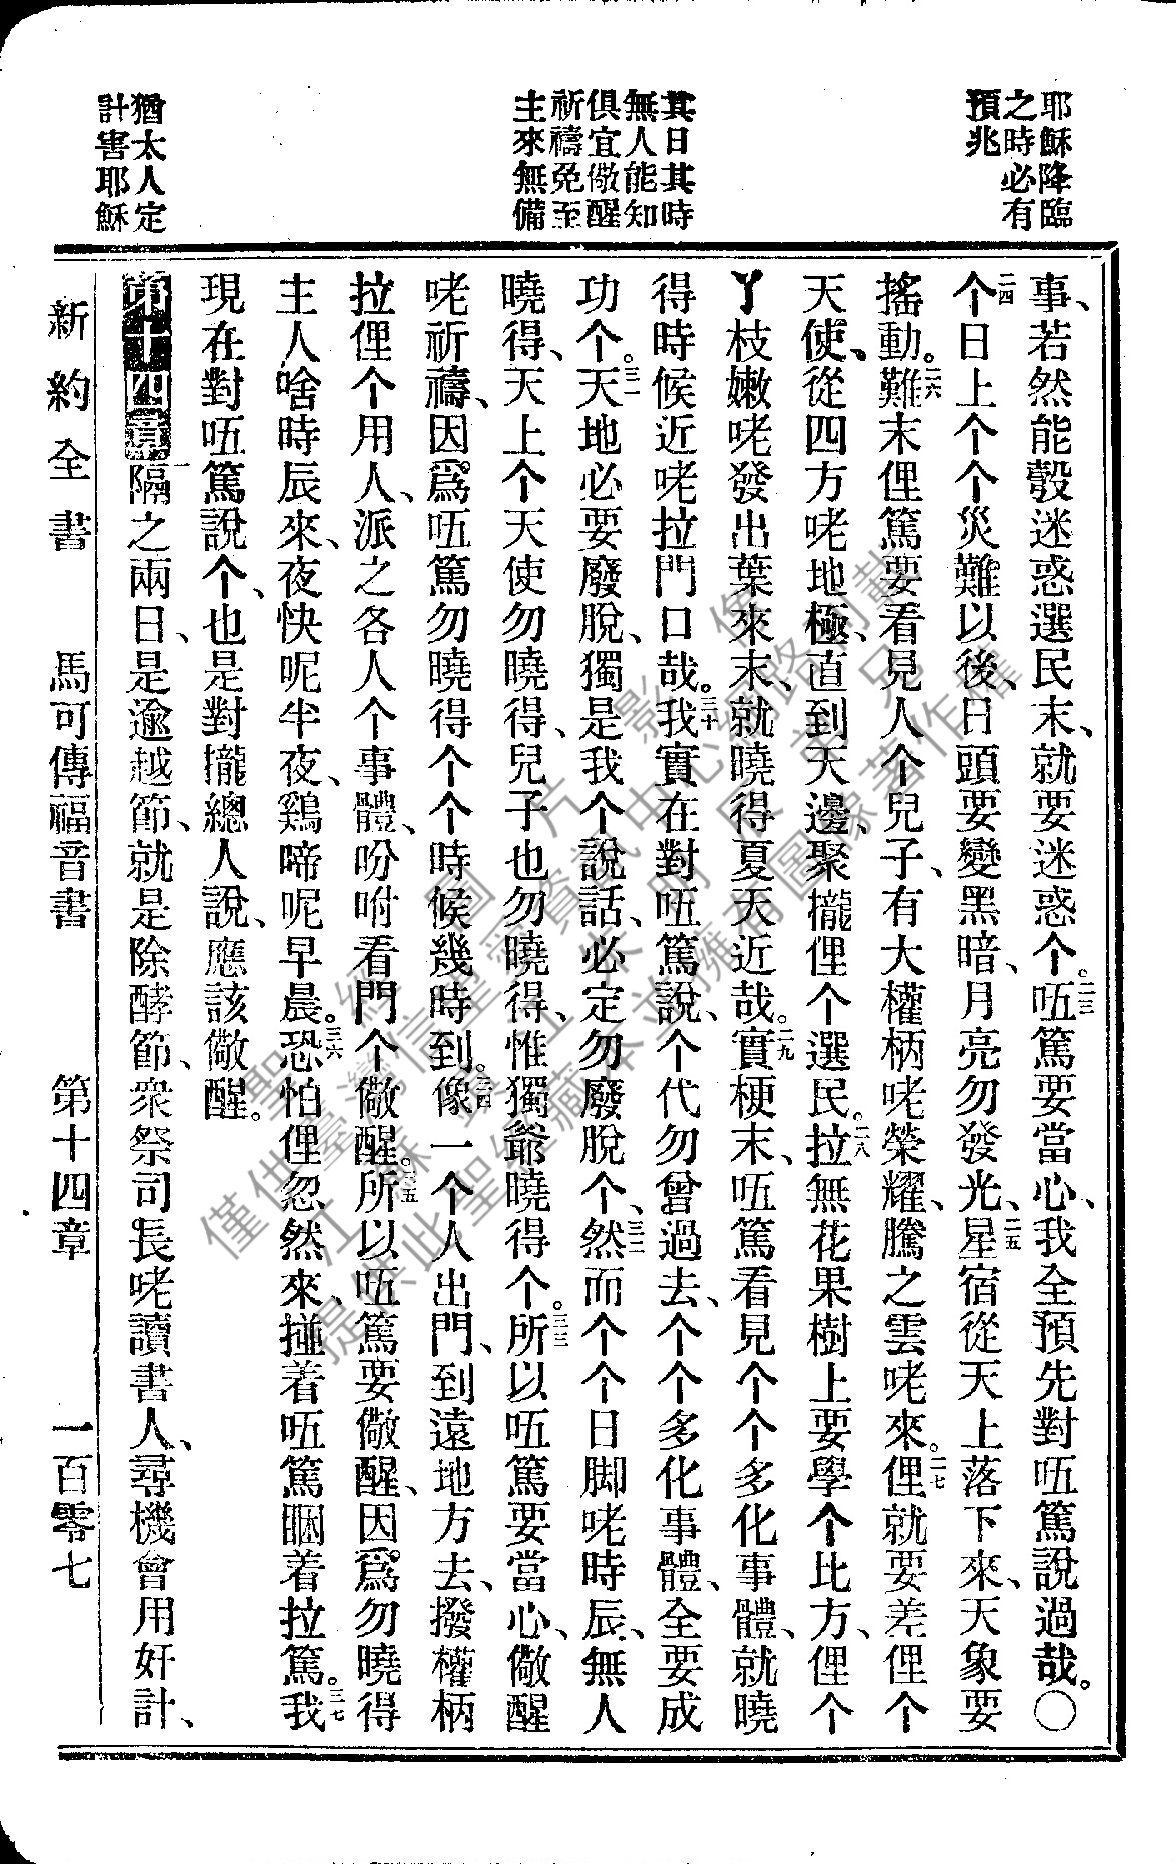 耶穌降臨
之時必有
預兆
其日其時
無人能知
俱宜儆醒
祈禱免至
主來無備
猶太人定
計害耶穌
事、若然能彀迷惑選民末、就要迷惑个。二三㕶篤要當心、我全預先對㕶篤說過哉。〇
二四个日上个个災難以後、日頭要變黑暗、月亮勿發光、二五星宿從天上落下來、天象要
搖動。二六難末俚篤要看見人个兒子、有大權柄咾榮耀、騰之雲咾來。二七俚就要差俚个
天使、從四方咾地極、直到天邊、聚攏俚个選民。二八拉無花果樹上要學个比方、俚个
丫枝嫩咾發出葉來末、就曉得夏天近哉。二九實梗末、㕶篤看見个个多化事體、就曉
得時候近咾拉門口哉。三十我實在對㕶篤說、个代勿曾過去、个个多化事體、全要成
功个。三一天地必要廢脫、獨是我个說話、必定勿廢脫个、三二然而个个日脚咾時辰、無人
曉得、天上个天使勿曉得、兒子也勿曉得、惟獨爺曉得个。三三所以㕶篤要當心、儆醒
咾祈禱、因爲㕶篤勿曉得个个時候幾時到。三四像一个人出門、到遠地方去、撥權柄
拉俚个用人、派之各人个事體、吩咐看門个儆醒。三五所以㕶篤要儆醒、因爲勿曉得
主人啥時辰來、夜快呢半夜、鷄啼呢早晨。三六恐怕俚忽然來、撞着㕶篤睏着拉篤。三七我
現在對㕶篤說个、也是對攏總人說、應該儆醒。
第十四章一隔之兩日、是逾越節、就是除酵節、衆祭司長咾讀書人、尋機會用奸計、
新約全書 馬可傳福音書 第十四章 一百零七
聖經圖片影像
僅供臺灣信望愛資訊中心網路刊載
提供此聖經藏本並擁有圖像著作權